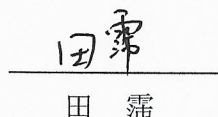 田霈
田 霈